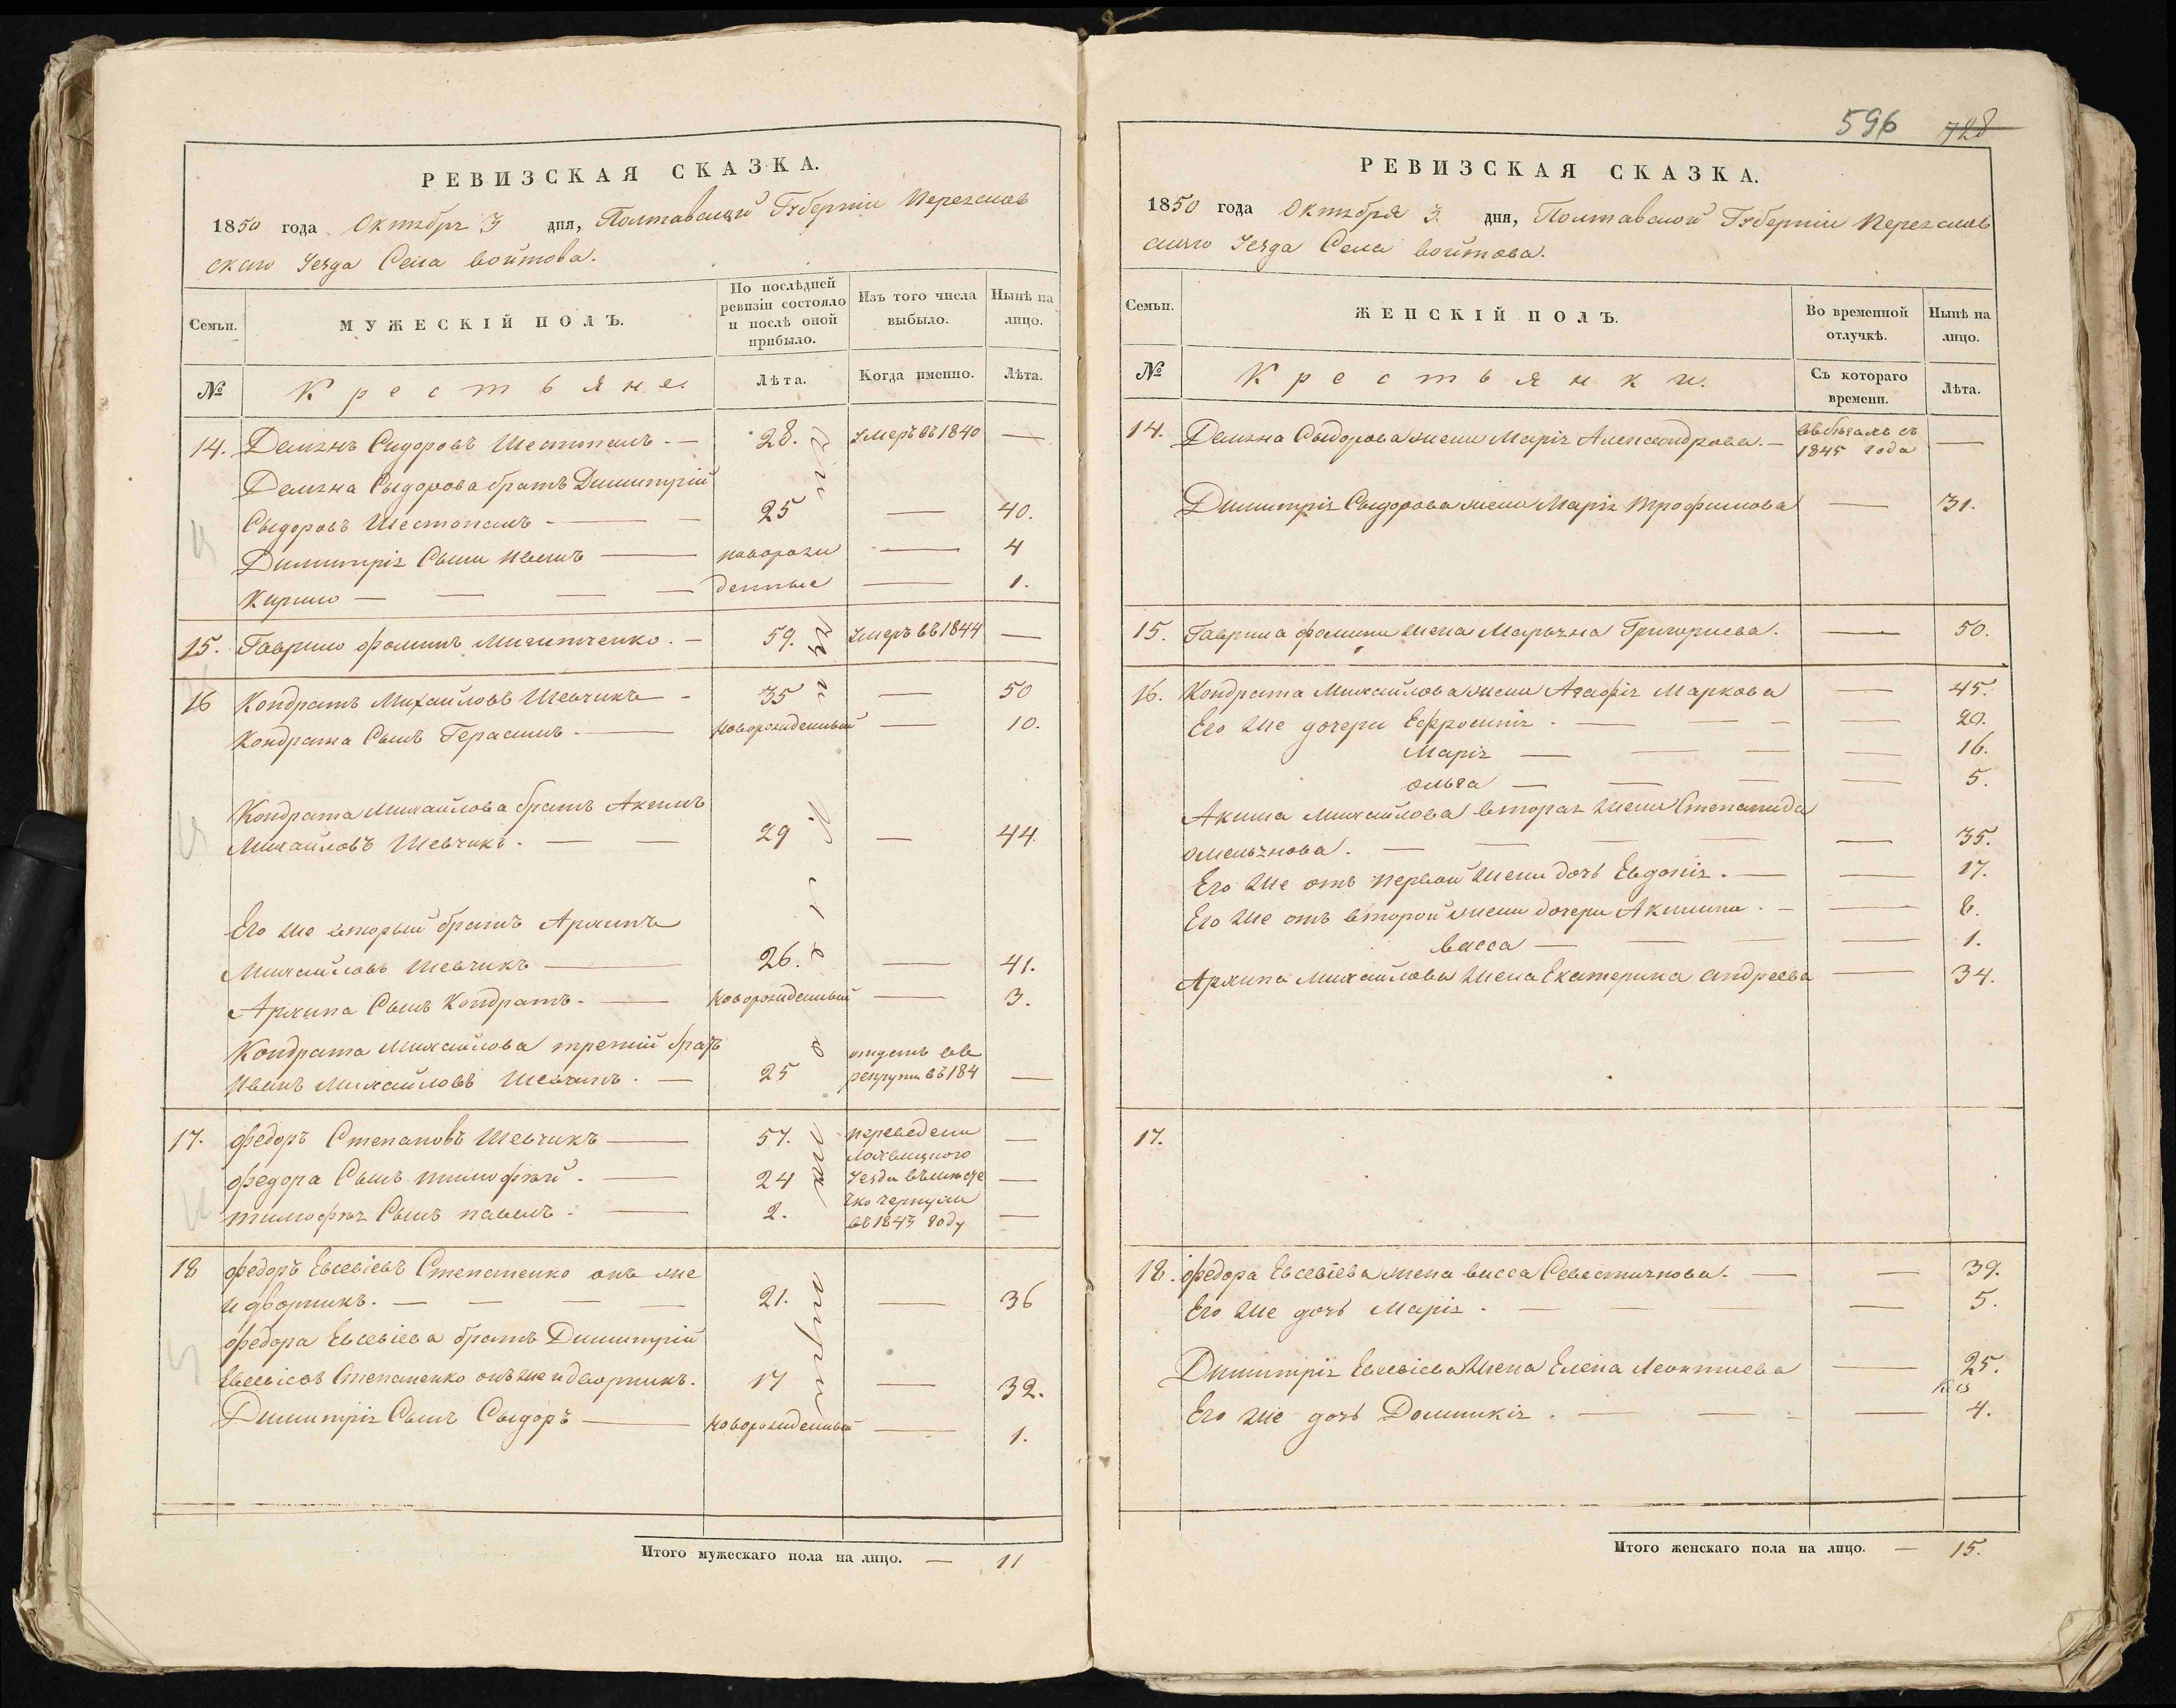 РЕВИЗСКАЯ СКАЗКА.
1850 года Октября 3 дня, Полтавской Губерніи Переяслав
скаго Уезда Села войтова.
Семьи.
МУЖЕСКІЙ ПОЛЪ.
По послѣдней ревизіи состояло и послѣ оной прибыло.
Изъ того числа выбыло.
Нынѣ на лицо.
№
Крестьяне.
Лѣта.
Когда именно.
Лѣта.
14. Демянъ Сидоровъ Шестопалъ. — 28. умеръ въ 1840 —
Демяна Сыдорова братъ Димитрій
Сыдоровъ Шестопалъ — 25 — 40.
Димитрія Сыны Иванъ — новорож — 4
Кирило — денные — 1.
15. Гаврило фоминъ — 59. умеръ въ 1844 —
16 Кондратъ Михайловъ Шевчикъ — 35 — 50
Кондрата Сынъ Герасимъ — новорожденный — 10.
Кондрата Михайлова братъ Акимъ
Михайловъ Шевчикъ. — 29 — 44.
Его же вторый братъ Архипъ
Михайловъ Шевчикъ — 26. — 41.
Архипа Сынъ Кондратъ — новорожденный — 3.
Кондрата Михайлова третій братъ
Иванъ Михайловъ Шевчикъ. — 25 отданъ въ рекруты въ 184 —
17. федоръ Степановъ Шевчикъ — 57. переведены —
федора Сынъ тимофѣй. — 24 —
тимофѣя Сынъ павелъ. — 2. въ 1843 году —
18 федоръ Евсевіевъ Степаненко онъ же
и дворникъ. — 21. — 36
федора Евсевіева братъ Димитрій
Евсевіевъ Степаненко онъ же и дворникъ. 17 — 32.
Димитрія Сынъ Сыдоръ — новорожденный — 1.
Итого мужескаго пола на лицо. — 11
596 728
РЕВИЗСКАЯ СКАЗКА.
1850 года Октября 3 дня, Полтавской Губерніи Переяслав
скаго Уезда Села войтова.
Семьи.
ЖЕНСКІЙ ПОЛЪ.
Во временной отлучкѣ.
Нынѣ на лицо.
№
Крестьянки.
Съ котораго времени.
Лѣта.
14. Демяна Сыдорова жена Марія Александрова. — въ бѣгахъ съ 1845 года —
Димитрія Сыдорова жена Марія трофимова — 31.
15. Гаврила фомина жена Марьяна Григориева. — 50.
16. Кондрата Михайлова жена Агафія Маркова — 45.
Его же дочери Ефросинія. — 20.
Марія — 16.
ольга — 5.
Акима Михайлова вторая жена Степанида
омельянова. — 35.
Его же отъ первой жены дочь Евдокія. — 17.
Его же отъ второй жены дочери Акилина. — 6.
васса — 1.
Архипа Михайлова жена Екатерина андреева — 34.
17.
18. федора Евсевіева жена васса Севестиянова. — 39.
Его же дочь Марія. — 5.
Димитрія Евсевіева жена Елена Леонтиева — 25.
Его же дочь Домникія. — 4.
Итого женскаго пола на лицо. — 15.